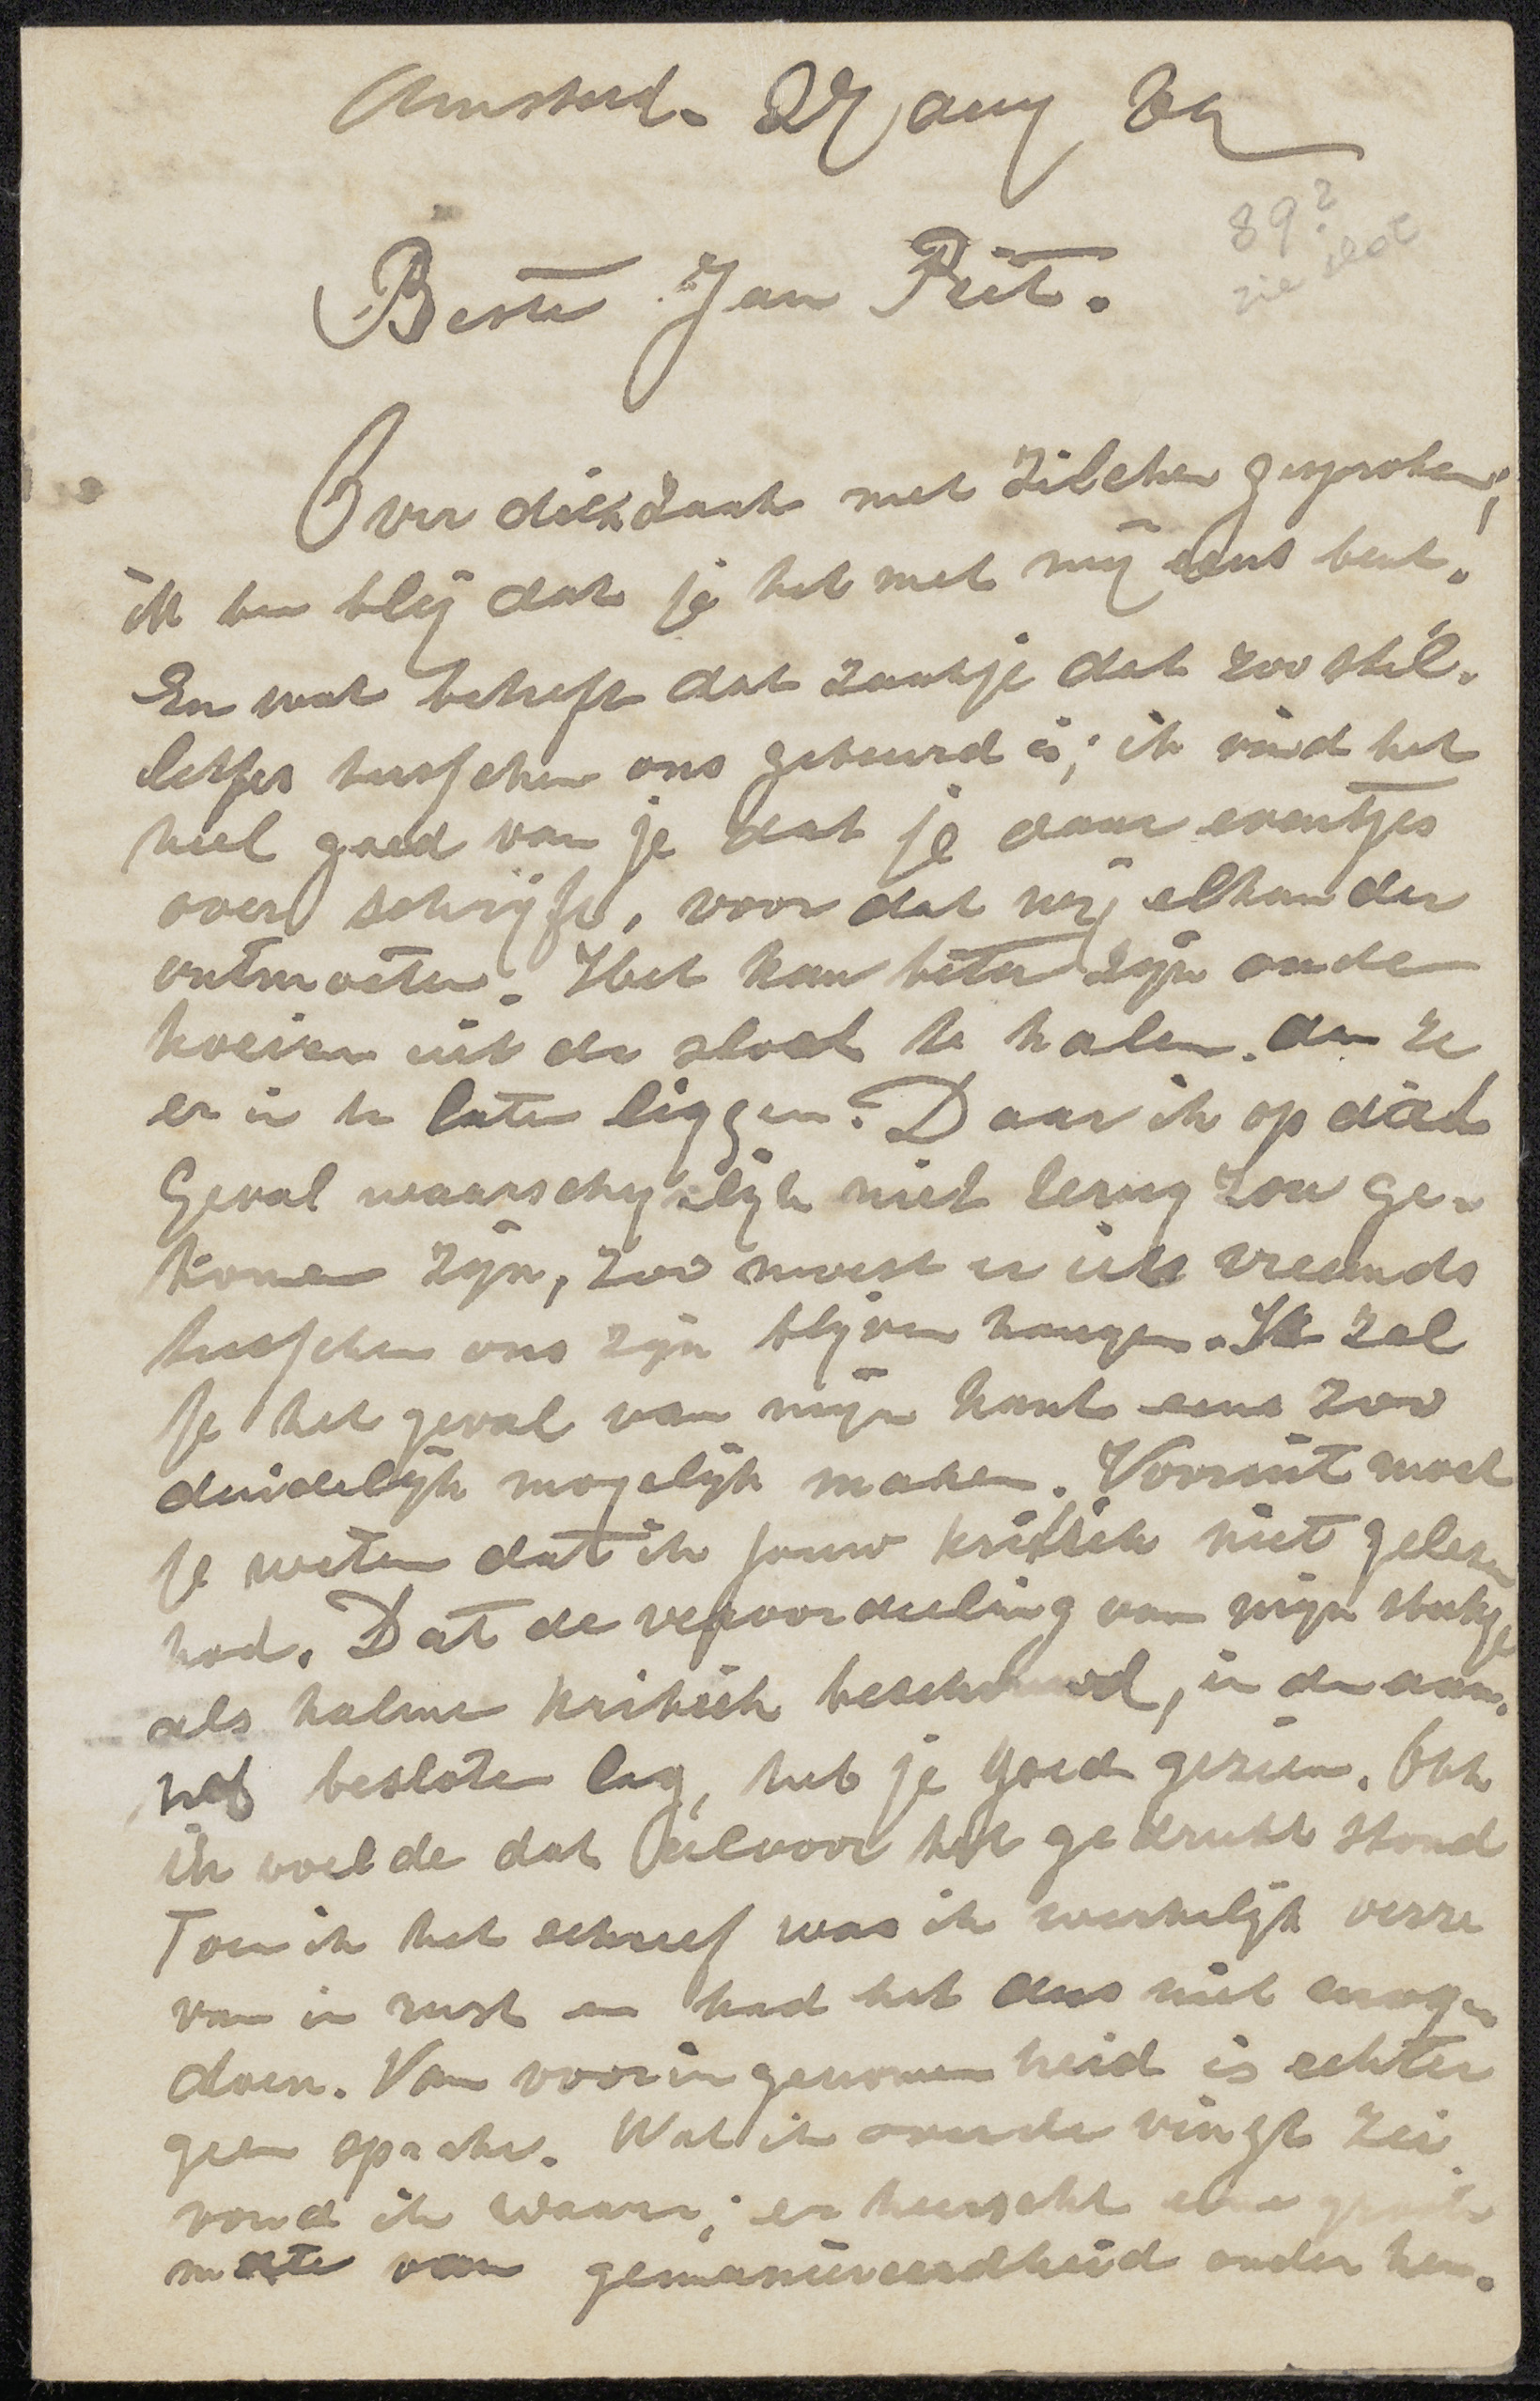 Amsterd. 27 aug
89?
zie slot
Beste Jan Piet.
Over die zaak met Zilcken gesproken;
ik ben blij dat je het met mij eens bent.
En wat betreft dat zaakje dat zoo stil-
letjes tusschen ons gebeurd is; ik vind het
heel goed van je dat je daar eventjes
over schrijft, voor dat wij elkander
ontmoeten. Het kan beter zijn oude
koeien uit de sloot te halen dan ze
er in te laten liggen. Daar ik op dat
Geval waarschijnlijk niet terug zou ge-
komen zijn, zoo moest er iets vreemds
tusschen ons zijn blijven hangen. Ik zal
je het geval van mijn kant eens zoo
duidelijk mogelijk maken. Vooruit moet
je weten dat ik jouw kritiek niet gelezen
had. Dat de veroordeeling van mijn stukje
als kalme kritiek beschouwd, in den aan-
hef besloten lag, heb je goed gezien. Ook
ik voelde dat alvoor het gedrukt stond
Toen ik het schreef was ik werkelijk verre
van in rust en had het dus niet mogen
doen. Van vooringenomenheid is echter
geen sprake. Wat ik over de vingt zei
vond ik waar; er heerscht eene groote
mate van gemanieerdheid onder hen.